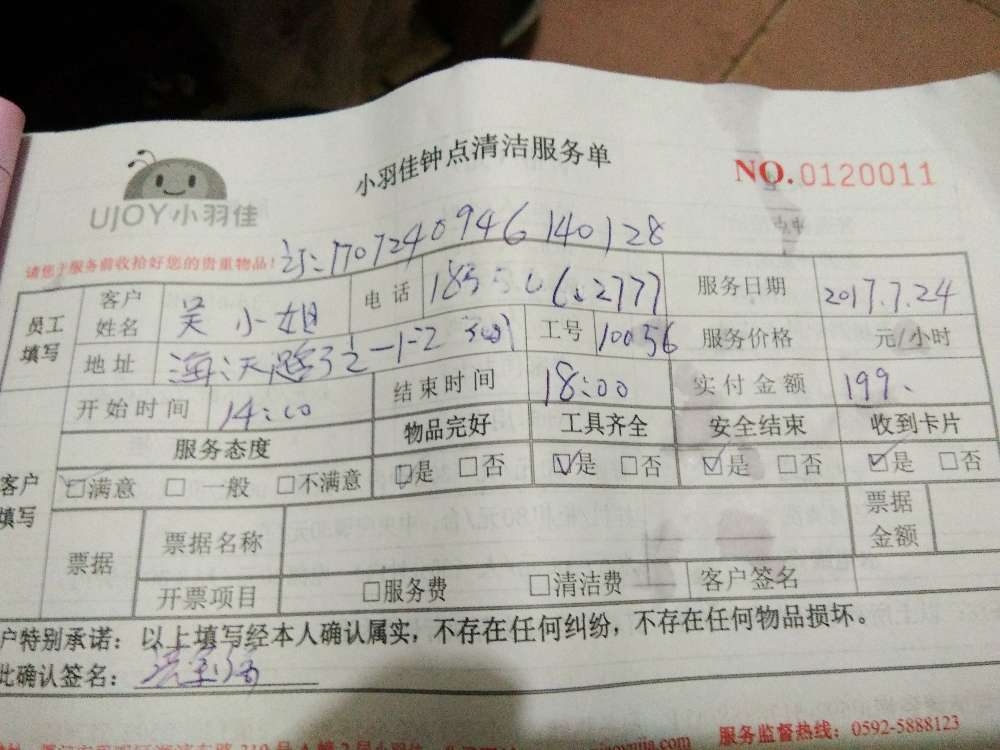 小羽佳钟点清洁服务单
NO.0120011
UJOY小羽佳
请您于服务前收拾好您的贵重物品！
1707240946140128
员工填写 客户姓名 吴小姐 电话 服务日期 2017.7.24
地址 工号 10056 服务价格 元/小时
开始时间 14:00 结束时间 18:00 实付金额 199.
客户填写 服务态度 物品完好 工具齐全 安全结束 收到卡片
☑满意 □一般 □不满意 ☑是 □否 ☑是 □否 ☑是 □否 ☑是 □否
票据 票据名称 票据金额
开票项目 □服务费 □清洁费 客户签名
户特别承诺：以上填写经本人确认属实，不存在任何纠纷，不存在任何物品损坏。
此确认签名：
服务监督热线：0592-5888123